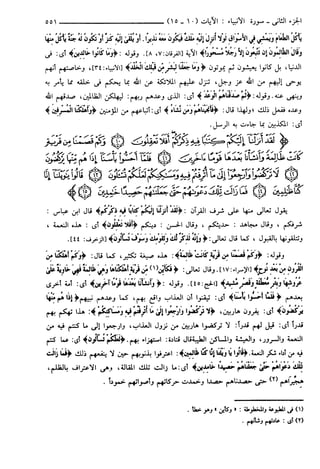 الجزء الثاني - سورة الأنبياء : الآيات (١٠ - ١٥) ٥٥١
يأكل الطعام ويمشي في الأسواق لولا أنزل إليه ملك فيكون معه نذيرا. أو يلقى إليه كنز أو تكون له جنة يأكل منها
وقال الظالمون إن تتبعون إلا رجلا مسحورا﴾ الآية [الفرقان: ٧، ٨]. وقوله: ﴿وما كانوا خالدين﴾ أي: في
الدنيا، بل كانوا يعيشون ثم يموتون ﴿وما جعلنا لبشر من قبلك الخلد﴾ [الأنبياء: ٣٤]، وخاصتهم أنهم
يوحى إليهم من الله عز وجل، تنزل عليهم الملائكة عن الله بما يحكم في خلقه مما يأمر به
وينهى عنه، وقوله: ﴿ثم صدقناهم الوعد﴾ أي: الذي وعدهم ربهم: ليهلكن الظالمين، صدقهم الله
وعده ففعل ذلك، ولهذا قال: ﴿فأنجيناهم ومن نشاء﴾ أي: أتباعهم من المؤمنين ﴿وأهلكنا المسرفين﴾
أي: المكذبين بما جاءت به الرسل.
لقد أنزلنا إليكم كتابا فيه ذكركم أفلا تعقلون وكم قصمنا من قرية
كانت ظالمة وأنشأنا بعدها قوما آخرين فلما أحسوا بأسنا إذا هم منها يركضون
لا تركضوا وارجعوا إلى ما أترفتم فيه ومساكنكم لعلكم تسألون قالوا يا ويلنا إنا
كنا ظالمين فما زالت تلك دعواهم حتى جعلناهم حصيدا
خامدين
يقول تعالى منبها على شرف القرآن: ﴿لقد أنزلنا إليكم كتابا فيه ذكركم﴾ قال ابن عباس:
شرفكم، وقال مجاهد: حديثكم، وقال الحسن: دينكم ﴿أفلا تعقلون﴾ أي: هذه النعمة،
وتتلقونها بالقبول، كما قال تعالى: ﴿وإنه لذكر لك ولقومك وسوف تسألون﴾ [الزخرف: ٤٤].
وقوله: ﴿وكم قصمنا من قرية كانت ظالمة﴾: هذه صيغة تكثير، كما قال: ﴿وكم أهلكنا من
القرون من بعد نوح﴾ [الإسراء: ١٧]. وقال تعالى: ﴿فكأين(١) من قرية أهلكناها وهي ظالمة فهي خاوية على
عروشها وبئر معطلة وقصر مشيد﴾ [الحج: ٤٥]. وقوله: ﴿وأنشأنا بعدها قوما آخرين﴾ أي: أمة أخرى
بعدهم ﴿فلما أحسوا بأسنا﴾ أي: تيقنوا أن العذاب واقع بهم، كما وعدهم نبيهم ﴿إذا هم منها
يركضون﴾ أي: يفرون هاربين، ﴿لا تركضوا وارجعوا إلى ما أترفتم فيه ومساكنكم﴾: هذا تهكم بهم
قدرا أي: قيل لهم قدرا: لا تركضوا هاربين من نزول العذاب، وارجعوا إلى ما كنتم فيه من
النعمة والسرور، والعيشة والمساكن الطيبة. قال قتادة: استهزاء بهم. ﴿لعلكم تسألون﴾ أي: عما كنتم
فيه من أداء شكر النعمة. ﴿قالوا يا ويلنا إنا كنا ظالمين﴾: اعترفوا بذنوبهم حين لا ينفعهم ذلك ﴿فما زالت
تلك دعواهم حتى جعلناهم حصيدا خامدين﴾ أي: ما زالت تلك المقالة، وهي الاعتراف بالظلم،
هجيراهم(٢) حتى حصدناهم حصدا وخمدت حركاتهم وأصواتهم خمودا.
(١) في المطبوعة والمخطوطة: «وكأين» وهو خطأ.
(٢) أي: عادتهم وشأنهم.